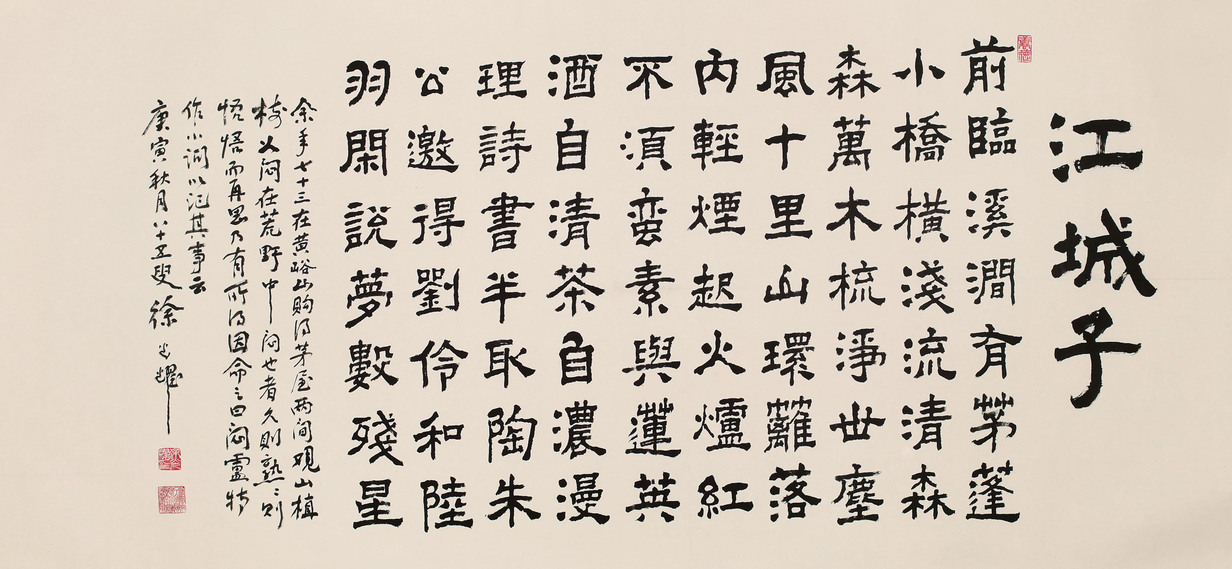 江城子
前臨溪澗有茅蓬
小橋橫淺流清森
森萬木梳淨世塵
風十里山環籬落
內輕煙起火爐紅
不須蛮素與蓮英
酒自清茶自濃漫
理詩書半耴陶朱
公邀得劉伶和陸
羽閑說夢數殘星
余年七十三在黄峪山购得茅屋两间观山植
樹以闷在荒野中闷也者久则熟熟则
悟而再思乃有所得因命之曰闷盧特
作小词以记其事云
庚寅秋月八十五叟徐